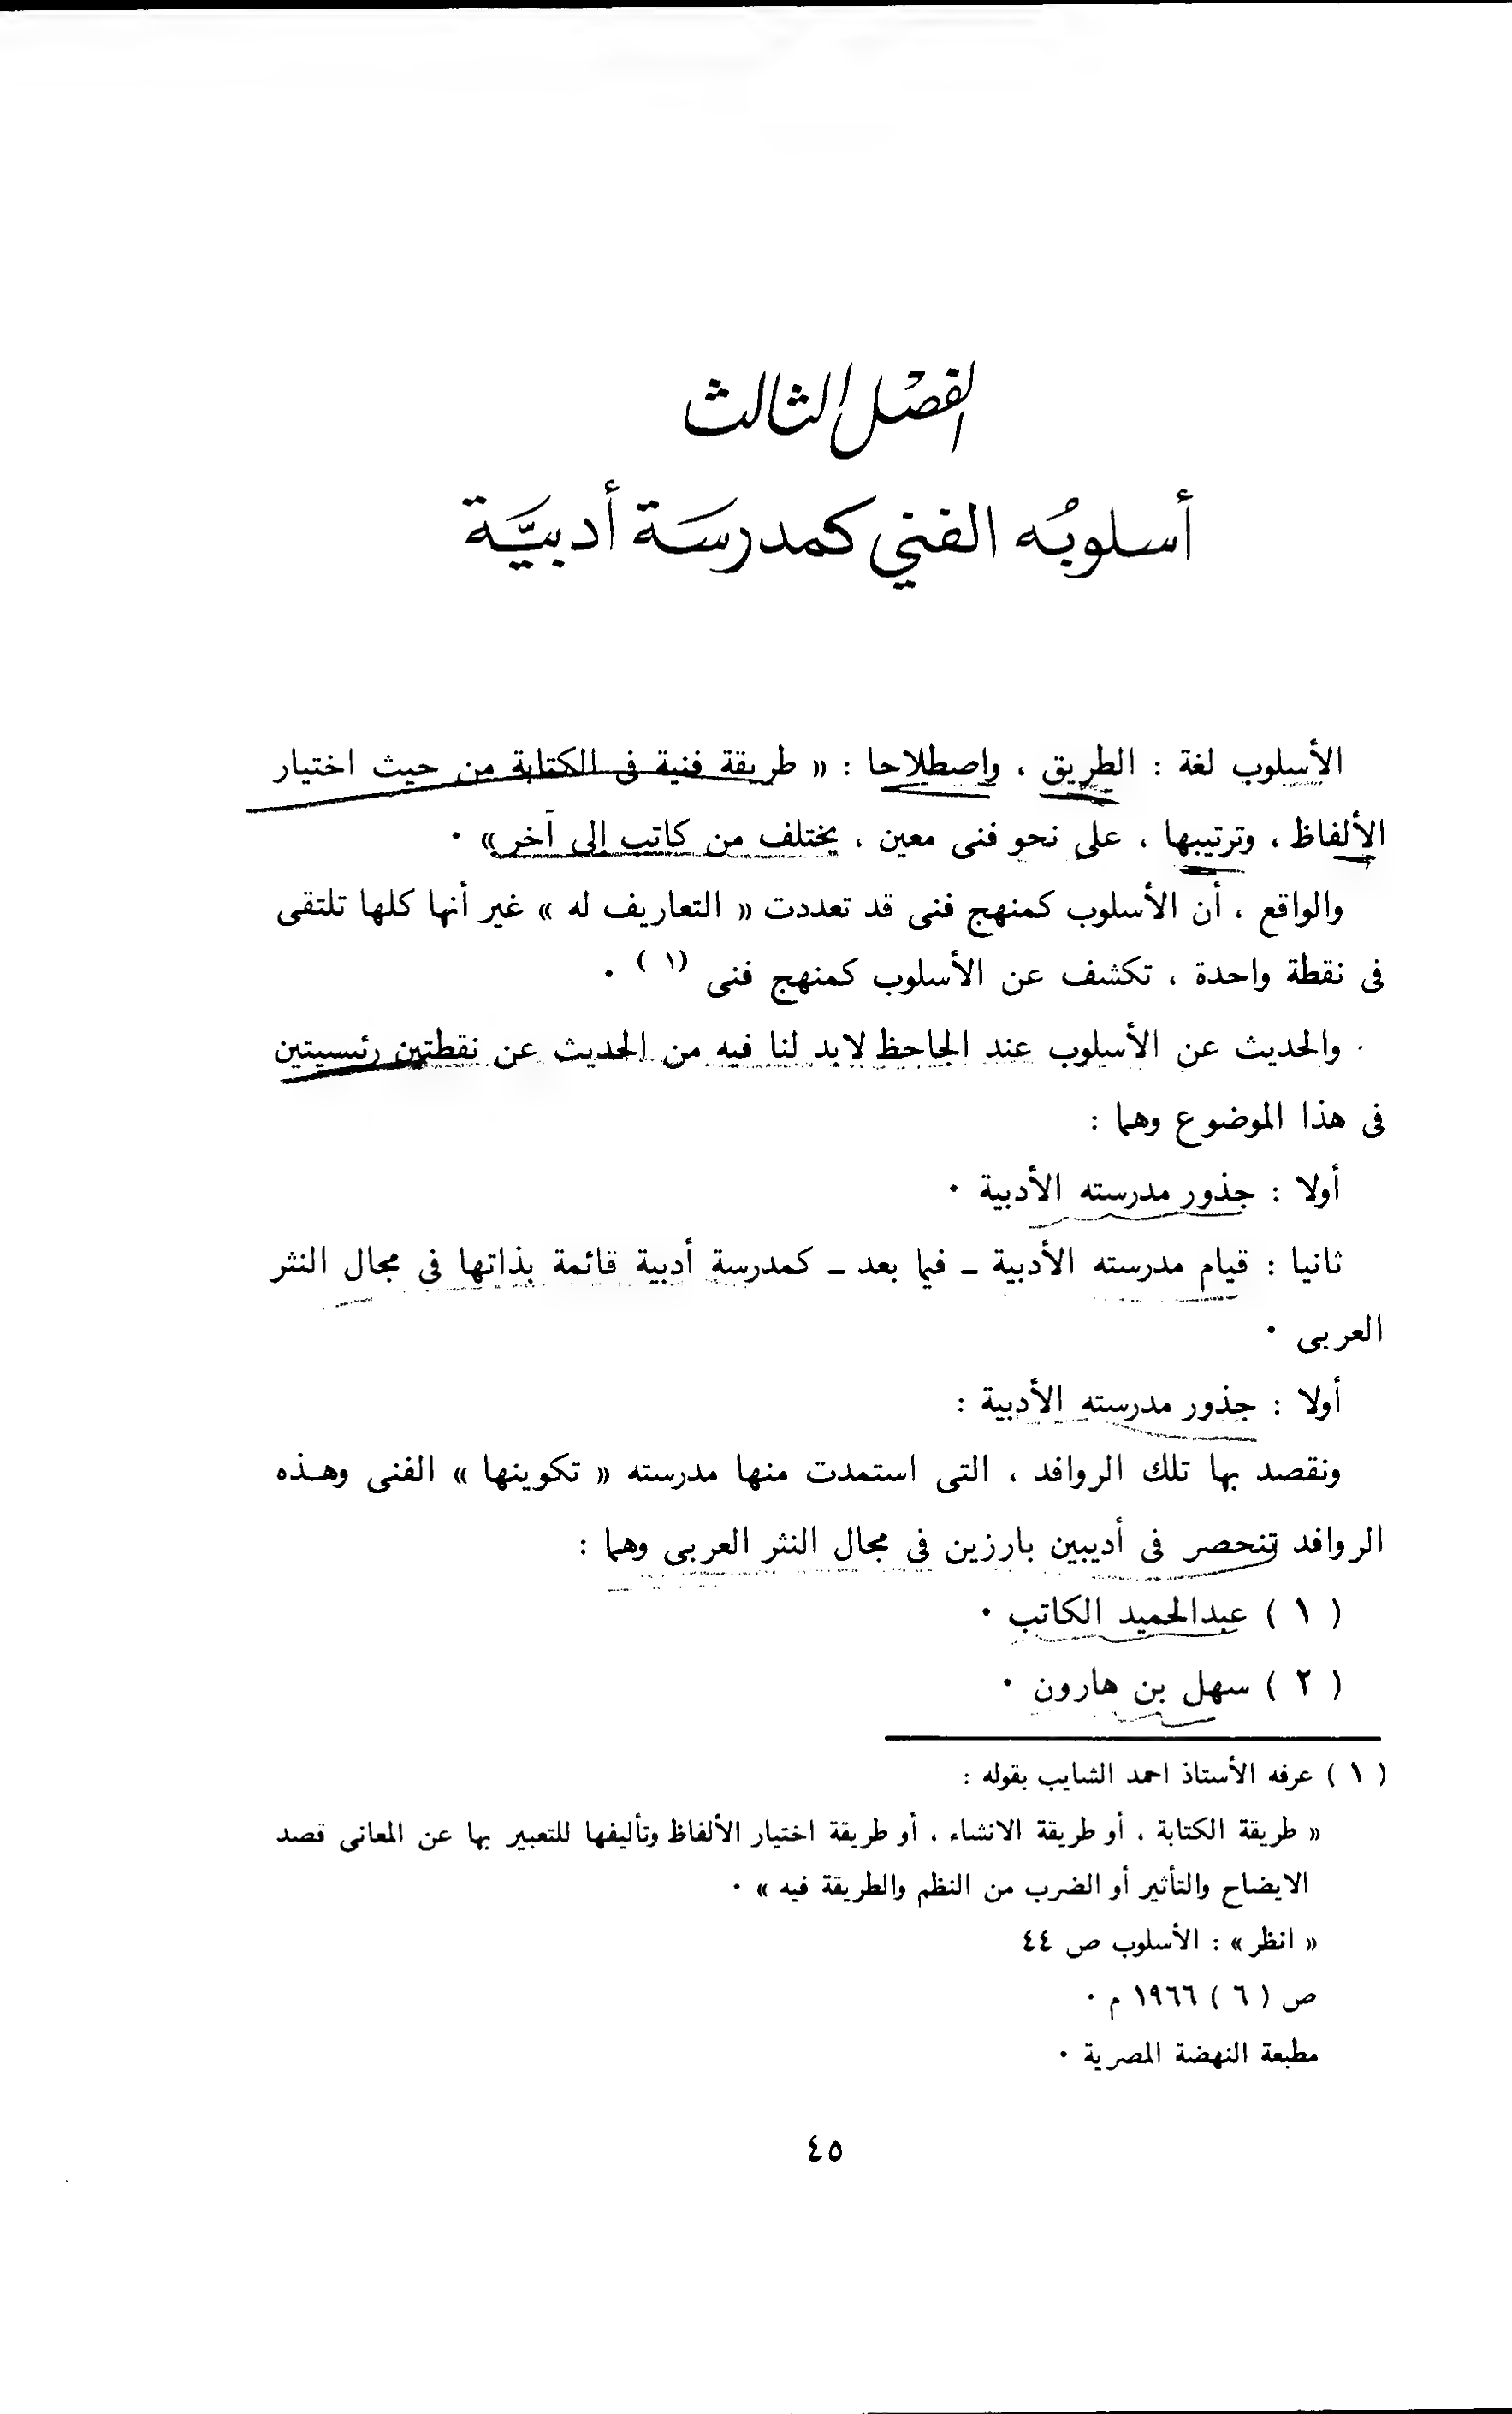 الفصل الثالث
أسلوبُه الفني كمدرسَة أدبيَّة
الأسلوب لغة : الطريق ، واصطلاحا : « طريقة فنية فى الكتابة من حيث اختيار
الألفاظ ، وترتيبها ، على نحو فنى معين ، يختلف من كاتب إلى آخر » .
والواقع ، أن الأسلوب كمنهج فنى قد تعددت « التعاريف له » غير أنها كلها تلتقى
فى نقطة واحدة ، تكشف عن الأسلوب كمنهج فنى (١) .
والحديث عن الأسلوب عند الجاحظ لابد لنا فيه من الحديث عن نقطتين رئسيتين
فى هذا الموضوع وهما :
أولا : جذور مدرسته الأدبية .
ثانيا : قيام مدرسته الأدبية ـ فيما بعد ـ كمدرسة أدبية قائمة بذاتها فى مجال النثر
العربى .
أولا : جذور مدرسته الأدبية :
ونقصد بها تلك الروافد ، التى استمدت منها مدرسته « تكوينها » الفنى وهـذه
الروافد تنحصر فى أديبين بارزين فى مجال النثر العربى وهما :
( ١ ) عبدالحميد الكاتب .
( ٢ ) سهل بن هارون .
( ١ ) عرفه الأستاذ احمد الشايب بقوله :
« طريقة الكتابة ، أو طريقة الانشاء ، أو طريقة اختيار الألفاظ وتأليفها للتعبير بها عن المعانى قصد
الايضاح والتأثير أو الضرب من النظم والطريقة فيه » .
« انظر » : الأسلوب ص ٤٤
ص ( ٦ ) ١٩٦٦ م .
مطبعة النهضة المصرية .
٤٥